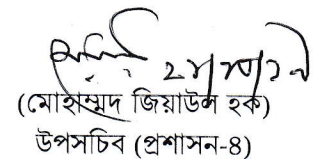 (মোহাম্মদ জিয়াউল হক)
উপসচিব (প্রশাসন-৪)